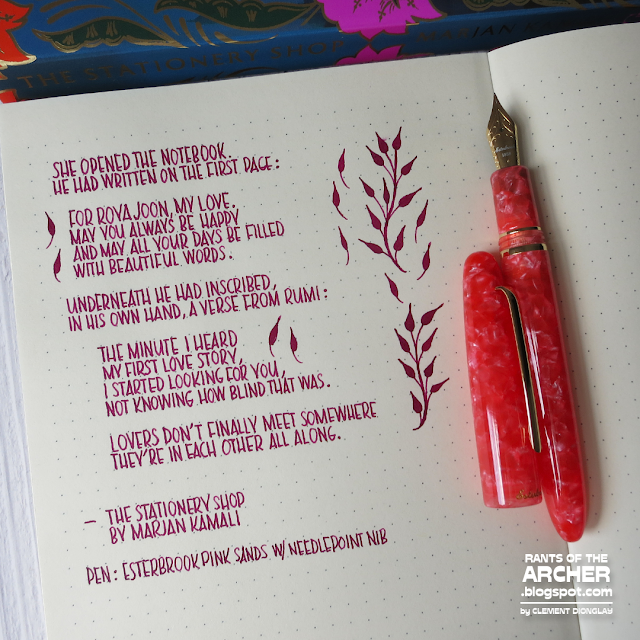 THE STATIONERY SHOP
SHE OPENED THE NOTEBOOK.
HE HAD WRITTEN ON THE FIRST PAGE:
FOR ROYA JOON, MY LOVE.
MAY YOU ALWAYS BE HAPPY
AND MAY ALL YOUR DAYS BE FILLED
WITH BEAUTIFUL WORDS.
UNDERNEATH HE HAD INSCRIBED,
IN HIS OWN HAND, A VERSE FROM RUMI:
THE MINUTE I HEARD
MY FIRST LOVE STORY,
I STARTED LOOKING FOR YOU,
NOT KNOWING HOW BLIND THAT WAS.
LOVERS DON'T FINALLY MEET SOMEWHERE
THEY'RE IN EACH OTHER ALL ALONG.
— THE STATIONERY SHOP
BY MARJAN KAMALI
PEN: ESTERBROOK PINK SANDS W/ NEEDLEPOINT NIB
RANTS OF THE
ARCHER
.blogspot.com
by CLEMENT DIONGLAY